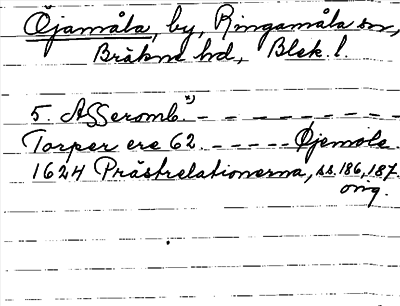 Öjamåla, by, Ringamåla sn,
Bräkne hd, Blek. l.
5. Asseromb. x) - - - - - - - -
Torper ere 62 - - - - - Øjemole
1624 Prästrelationerna, ss. 186, 187
orig.